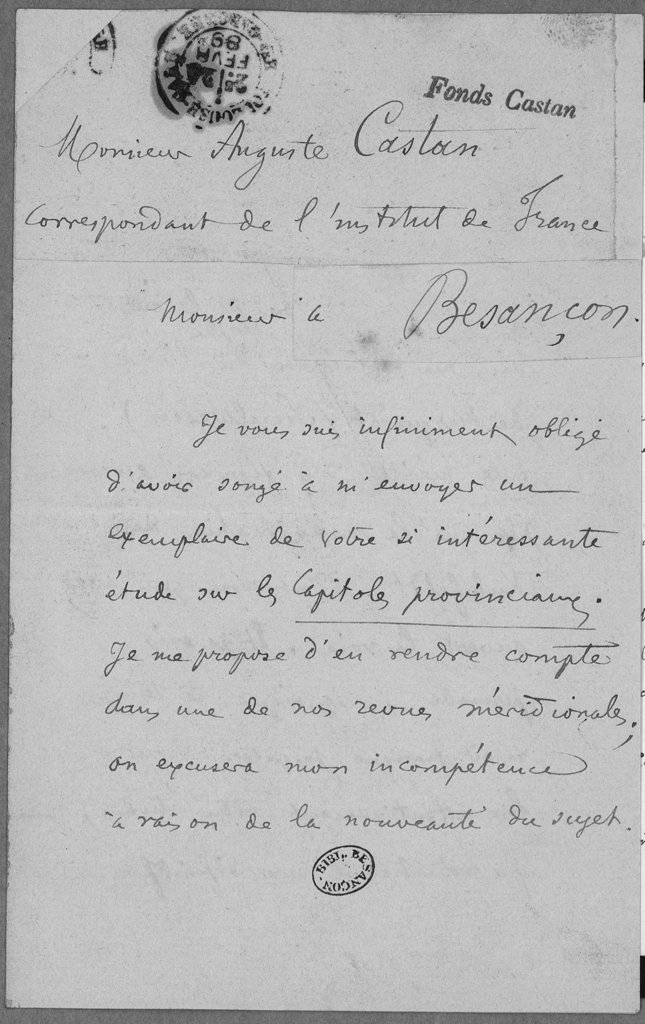 Fonds Castan
Monsieur Auguste Castan
Correspondant de l'institut de France
Monsieur à Besançon.
Je vous suis infiniment obligé
d'avoir songé à m'envoyer un
exemplaire de votre si intéressante
étude sur les Capitoles provinciaux.
Je me propose d'en rendre compte
dans une de nos revues méridionales;
on excusera mon incompétence
à raison de la nouveauté du sujet.
BIBL. BESANÇON